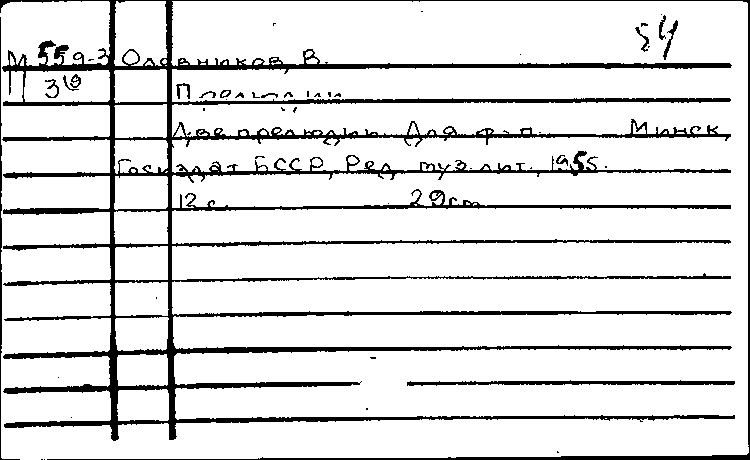 54
М 559-3 Оловников, В.
36 Прелюдии
Две прелюдии Для ф-п. Минск,
Госиздат БССР, Ред. муз. лит., 1955.
12 с. 29cm